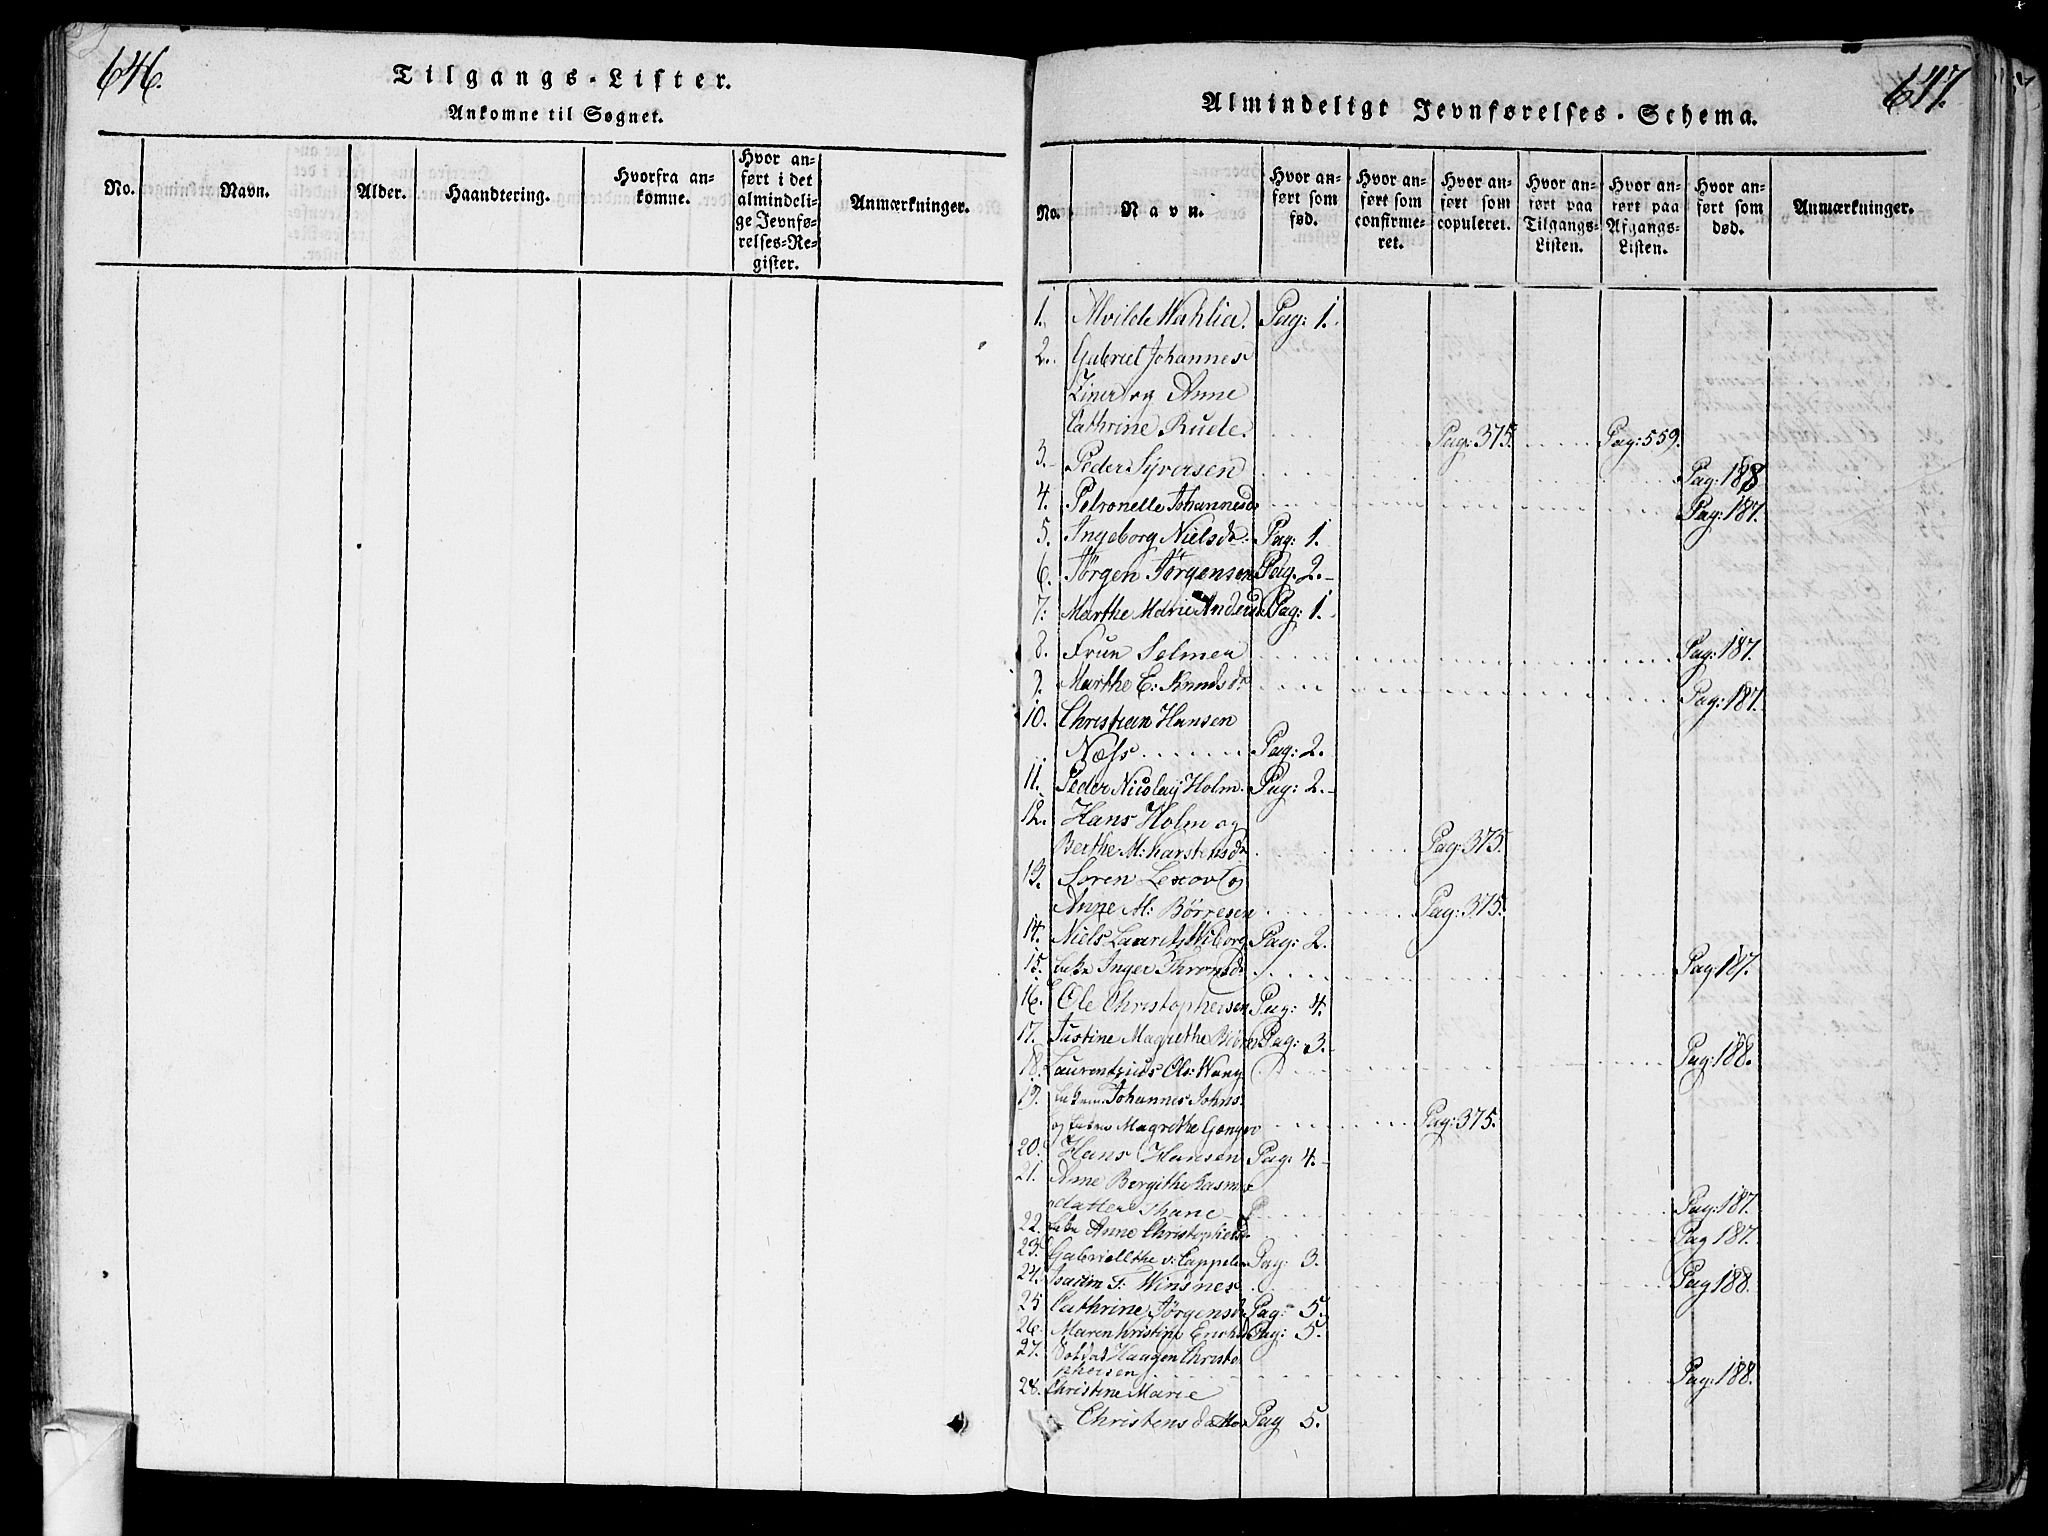 646.
Tilgangs-Lister.
Ankomne til Sognet.
No.
Navn.
Alder.
Haandtering.
Hvorfra ankomne.
Hvor anført i det almindelige Jevnførelses-Register.
Anmærkninger.
647.
Almindeligt Jevnførelses-Schema.
No.
Navn.
Hvor anført som fød.
Hvor anført som confirmeret.
Hvor anført som copuleret.
Hvor anført paa Tilgangs-Listen.
Hvor anført paa Afgangs-Listen.
Hvor anført som død.
Anmærkninger.
1. Alvilde Mahlia. Pag: 1.
2. Gabriel Johannes
Ziner og Anne
Cathrine Ruele. Pag: 375. Pag: 559.
3. Peder Syversen Pag: 188
4. Petronelle Johannesd. Pag: 187.
5. Ingeborg Nielsd. Pag: 1.
6. Jörgen Jörgensen Pag. 2.
7. Marthe Marie Andersd. Pag: 1.
8. Frue Selmer Pag: 187.
9. Marthe E: Knudsd. Pag: 187.
10. Christian Hansen
Næss Pag: 2.
11. Peder Nicolay Holm. Pag: 2.
12. Hans Holm og
Berthe M: Karstensd. Pag: 375.
13. Søren Lexov og
Anne M: Börresen Pag: 375.
14. Niels Laurits Wiborg Pag: 2.
15. Enke Inger Thronsd. Pag: 187.
16. Ole Christophersen Pag: 4.
17. Justine Magrethe Pag: 3.
18. Laurentzius Ols: Wang Pag: 188.
19. Johannes Johns.
og Magrethe Pag: 375.
20. Hans Hansen Pag: 4.
21. Anne Bergithe Rasmus
datter Thane Pag: 187.
22. Enke Anne Christophersd. Pag 187.
23. Gabrielle the v: Cappelen Pag: 3.
24. Joachim F. Winsnes Pag 188.
25 Cathrine Jörgensd. Pag: 5.
26. Maren Kristine Pag: 5.
27. Soldat Haagen Christo
phersen Pag: 188.
28. Christine Marie
Christensdatter Pag 5.